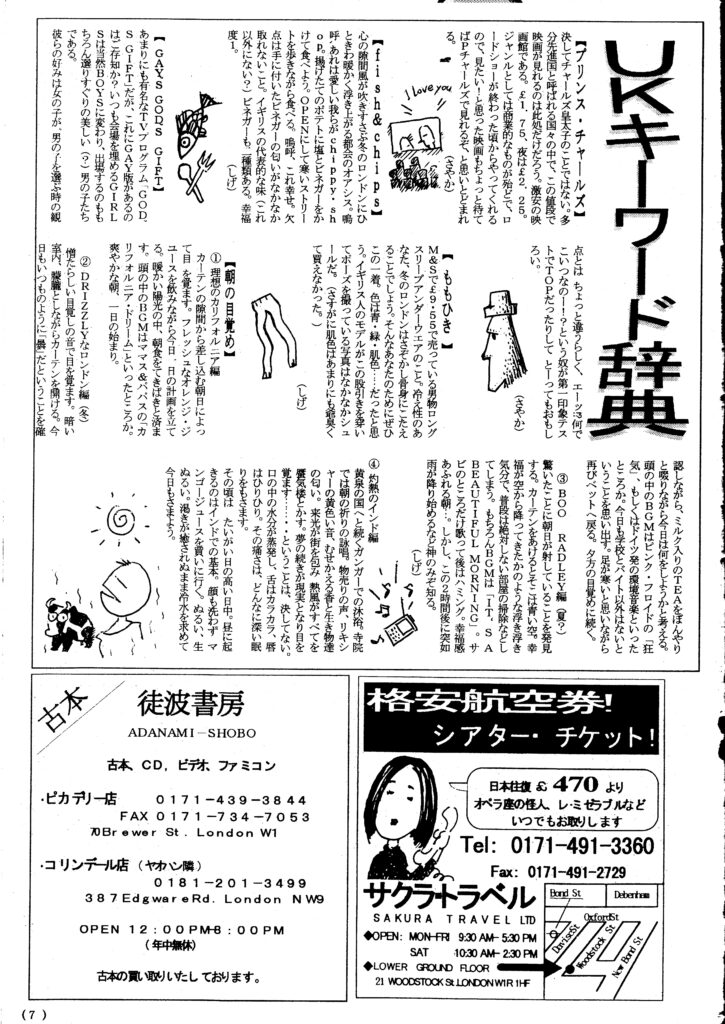 UKキーワード辞典
【プリンス・チャールズ】
決してチャールズ皇太子のことではない。多
分先進国と呼ばれる国々の中で、この値段で
映画が見れるのは此処だけだろう。激安の映
画館である。£1.75、夜は£2.25。
ジャンルとしては商業的なものが殆どで、ロ
ードショーが終わった頃からやってくれる
ので、見たい!と思った映画もちょっと待て
ばPチャールズで見れるぞ、と思いとどまれ
る。
(さやか)
I love you
【fish&chips】
心の隙間風が吹きすさぶ冬のロンドンにひ
ときわ暖かく浮き上がる都会のオアシス、嗚
呼、あれは愛しい我らがchippy・sh
op。揚げたてのポテトに塩とビネガーをか
けて食べよう。OPENにして寒いストリー
トを歩きながら食べる。嗚呼、これ幸せ。欠
点は手に付いたビネガーの匂いがなかなか
取れないこと。イギリスの代表的な味(これ
以外にない?)ビネガーも、一種類ある。幸福
度1。
(しげ)
【GAYS GODS GIFT】
あまりにも有名なTVプログラム「GOD,
S GIFT」だが、これにGAY版があるの
はご存知か?いつも会場を埋めるGIRL
Sは当然BOYSに変わり、出場するのもも
ちろん選りすぐりの美しい(?)男の子たち
である。
彼らの好みは女の子が男の子を選ぶ時の観
点とは ちょっと違うらしく、エーッ?何で
こいつなのー!?という奴が第一印象テス
トでTOPだったりして とーってもおもし
ろい。
(さやか)
【ももひき】
M&Sで£9.55で売っている男物ロング
スリーブアンダーウエアのこと。冷え性のあ
なた、冬のロンドンはさぞかし骨身にこたえ
ことでしょう。そんなあなたのためにぜひ
この一着。色は青・緑・肌色……だったと思
う。イギリス人のモデルがこの股引きを穿い
てポーズを撮っている写真はなかなかシュ
ールだ。(さすがに肌色はあまりにも爺臭く
て買えなかった。)
(しげ)
【朝の目覚め】
① 理想のカリフォルニア編
カーテンの隙間から差し込む朝日によっ
て目 を覚ます。フレッシュなオレンジ・ジ
ュースを飲みながら今日一日の計画を立て
る。暖かい陽光の中、朝食をてきぱきと済ま
す。頭の中のBGMはママス&パパスの「カ
リフォルニア・ドリーム」といったところか。
爽やかな朝、一日の始まり。
② DRIZZLYなロンドン編(冬)
憎たらしい目覚しの音で目を覚ます。暗い
室内、朦朧としながらカーテンを開ける。今
日もいつものように「曇」だということを確
認しながら、ミルク入りのTEAをぼんやり
と啜りながら今日は何をしようかと考える。
頭の中のBGMはピンク・フロイドの「狂
気」、もしくはドイツ発の環境音楽といった
ところか。今日も学校とバイト以外はないと
いうことを思い出す。足が寒いと思いながら
再びベットへ戻る。夕方の目覚めに続く。
③ BOO RADLEY編(夏?)
驚いたことに朝日が射していることを発見
する。カーテンをあけるとそこは青い空。幸
福が空から降ってきたかのような浮き浮き
気分で、普段は絶対しない部屋の掃除などし
てしまう。もちろんBGMは「IT,SA
BEAUTIFUL MORNING」。サ
ビのところだけ歌って後はハミング。幸福感
あふれる朝…。しかし、この2時間後に突如
雨が降り始めるなど神のみぞ知る。
(しげ)
④ 灼熱のインド編
黄泉の国へと続くガンガーでの沐浴。寺院
では朝の祈りの詠唱。物売りの声、リキシ
ャーの黄色い音、むせかえる香と生き物達
の匂い。来光が街を包み 熱風がすべてを
蜃気楼とかす。夢の続きが現実となり目を
覚ます……ということは、決してない。
口の中の水分が蒸発し、舌はカラカラ、唇
はひりひり。その痛さは、どんなに深い眠
りをもさます。
その頃は たいがい日の高い日中。昼に起
きるのはインドでの基本。顔も洗わず マ
ンゴージュースを買いに行く。ぬるい、生
ぬるい。渇きが癒されぬまま冷水を求めて
今日もさまよう。
古本
徒波書房
ADANAMI-SHOBO
古本、CD, ビデオ、ファミコン
・ピカデリー店 0171-439-3844
FAX 0171-734-7053
70Brewer St. London W1
・コリンデール店 (ヤオハン隣)
0181-201-3499
387Edgware Rd. London NW9
OPEN 12:00PM-8:00PM
(年中無休)
古本の買い取りいたしております。
格安航空券!
シアター・チケット!
日本往復 & 470 より
オペラ座の怪人、レ・ミゼラブルなど
いつでもお取りします
Tel: 0171-491-3360
Fax: 0171-491-2729
サクラ・トラベル
SAKURA TRAVEL LTD
◆OPEN: MON-FRI 9:30 AM-5:30 PM
SAT 10:30 AM-2:30 PM
◆LOWER GROUND FLOOR
21 WOODSTOCK St.LONDON W1R 1HF
Bond St
Debenham
OxfordSt
DaviesSt
Woodstock St
New Bond St
(7)